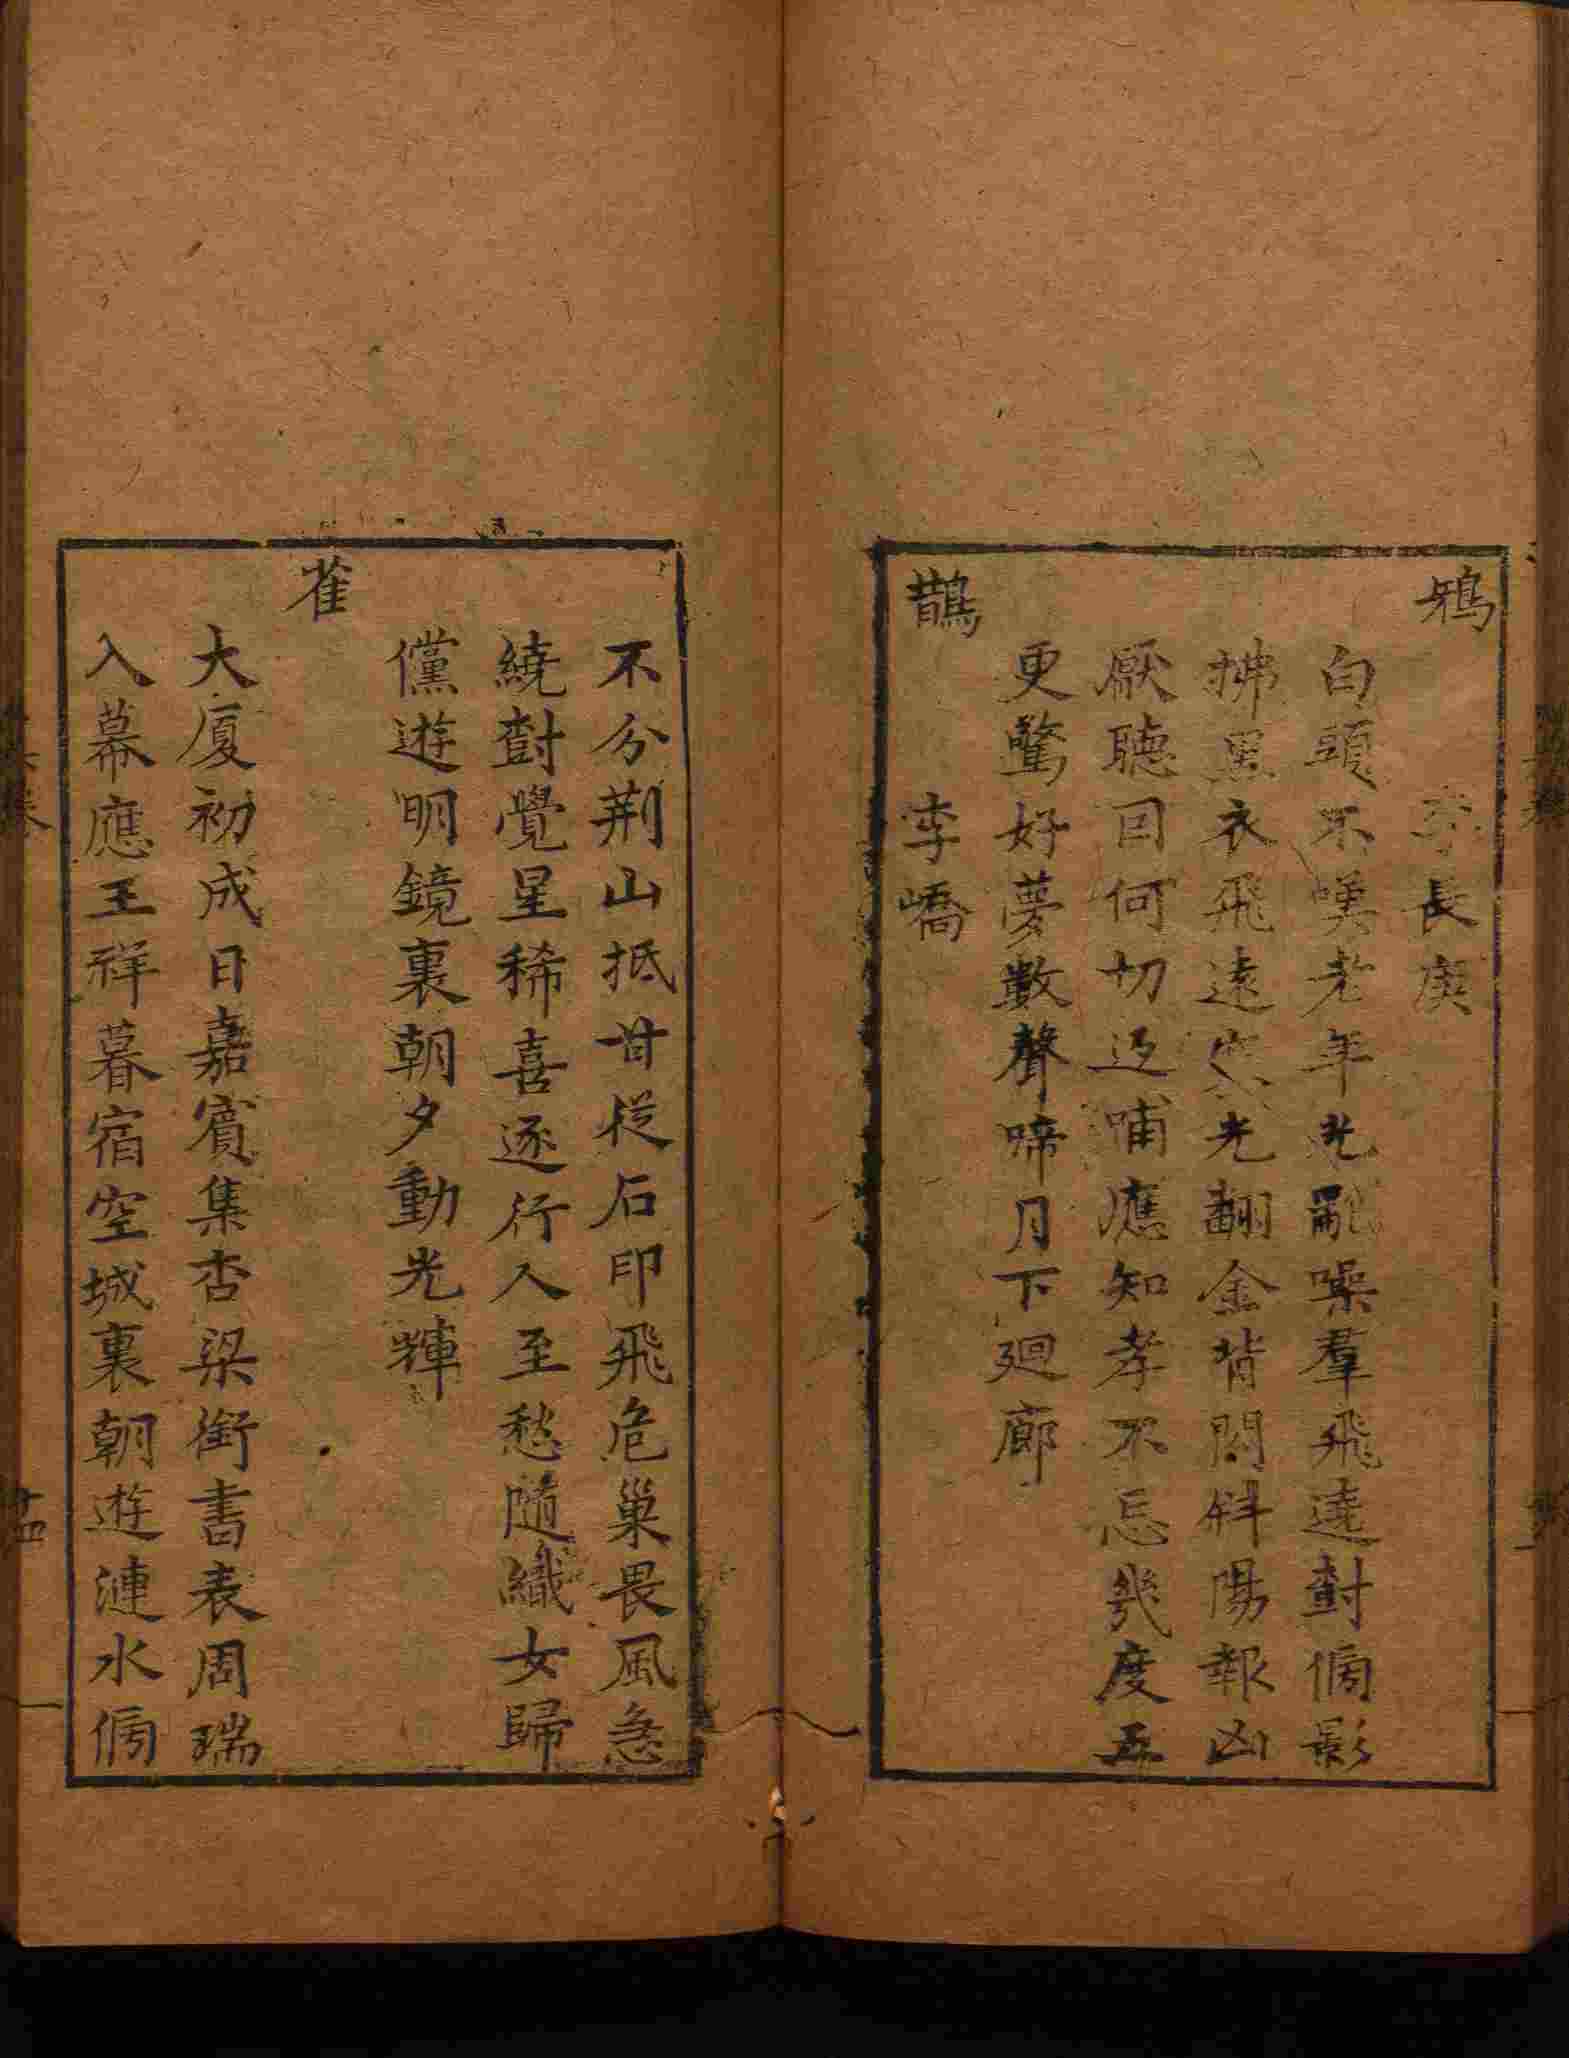 鴉
李長庚
白頭不嘆老年光亂噪羣飛遶樹傍影
拂黑衣飛遠光翻金背閃斜陽報凶
厭聽回何切返哺應知孝不忘幾度五
更驚好夢數聲啼月下廻廊
鵲
李嶠
不分荊山抵甘從石印飛危巢畏風急
繞樹覺星稀喜逐行人至愁隨織女歸
儻遊明鏡裏朝夕動光輝
雀
大廈初成日嘉賓集杏梁銜書表周瑞
入幕應王祥暮宿空城裏朝遊漣水傍
十四